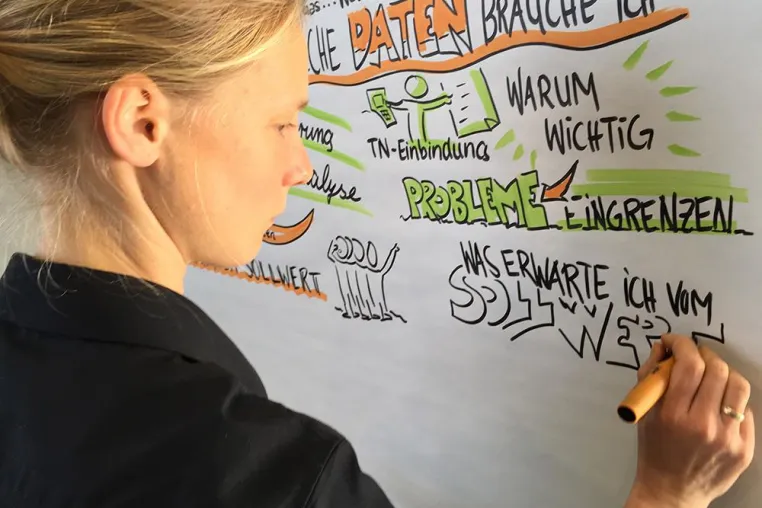 DATEN BRAUCHE ICH
WARUM
WICHTIG
TN-Einbindung
PROBLEME EINGRENZEN
SOLLWERT
WAS ERWARTE ICH VOM
SOLL WER